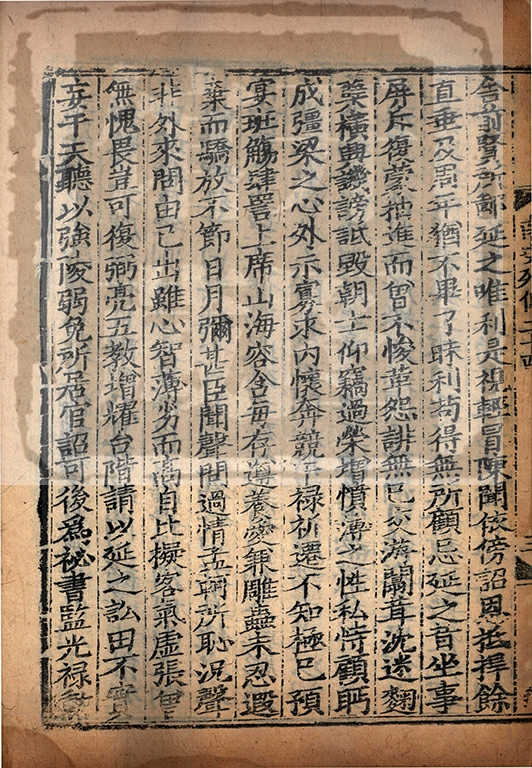 舍前賢所鄙延之唯利是視輕冒陳聞依傍詔恩抵捍餘
直垂及周年猶不畢了昧利苟得無所顧忌延之昔坐事
屏斥復蒙抽進而曾不悛革怨誹無已交游闒茸沈迷麴
糱橫興譏謗詆毀朝士仰竊過榮增憤薄之性私恃顧眄
成彊梁之心外示寡求內懷奔競干祿祈遷不知極已預
宴班觴肆詈上席山海容含每存遵養愛兼雕蟲未忍遐
棄而驕放不節日月彌甚臣聞聲問過情孟軻所恥況聲
非外來問由己出雖心智薄劣而高自比擬客氣虛張曾
無愧畏豈可復弼亮五教增耀台階請以延之訟田不實
妄干天聽以強陵弱免所居官詔可後為祕書監光祿